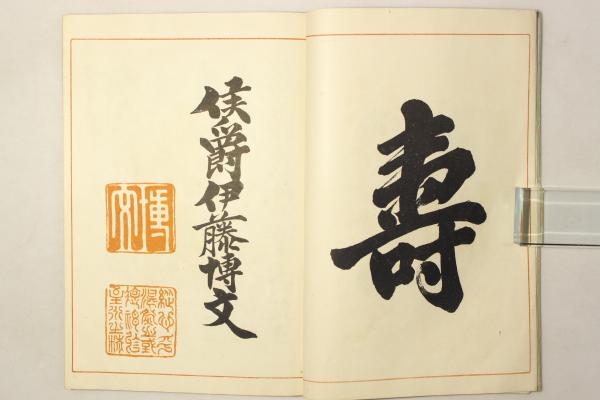 壽
侯爵伊藤博文
博文